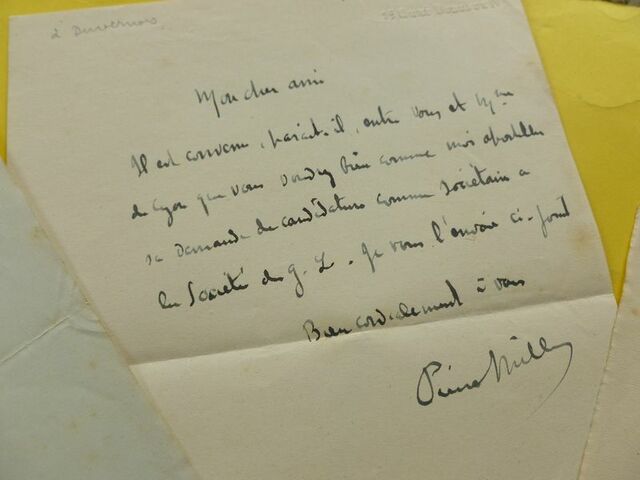 à Duvernois
Mon cher ami
Il est convenu, paraît-il, entre vous et Mme
de Cyon que vous voudrez bien comme moi apostiller
sa demande de candidature comme sociétaire à
la Société des G. L. Je vous l'envoie ci-joint
Bien cordialement à vous
Pierre Mille